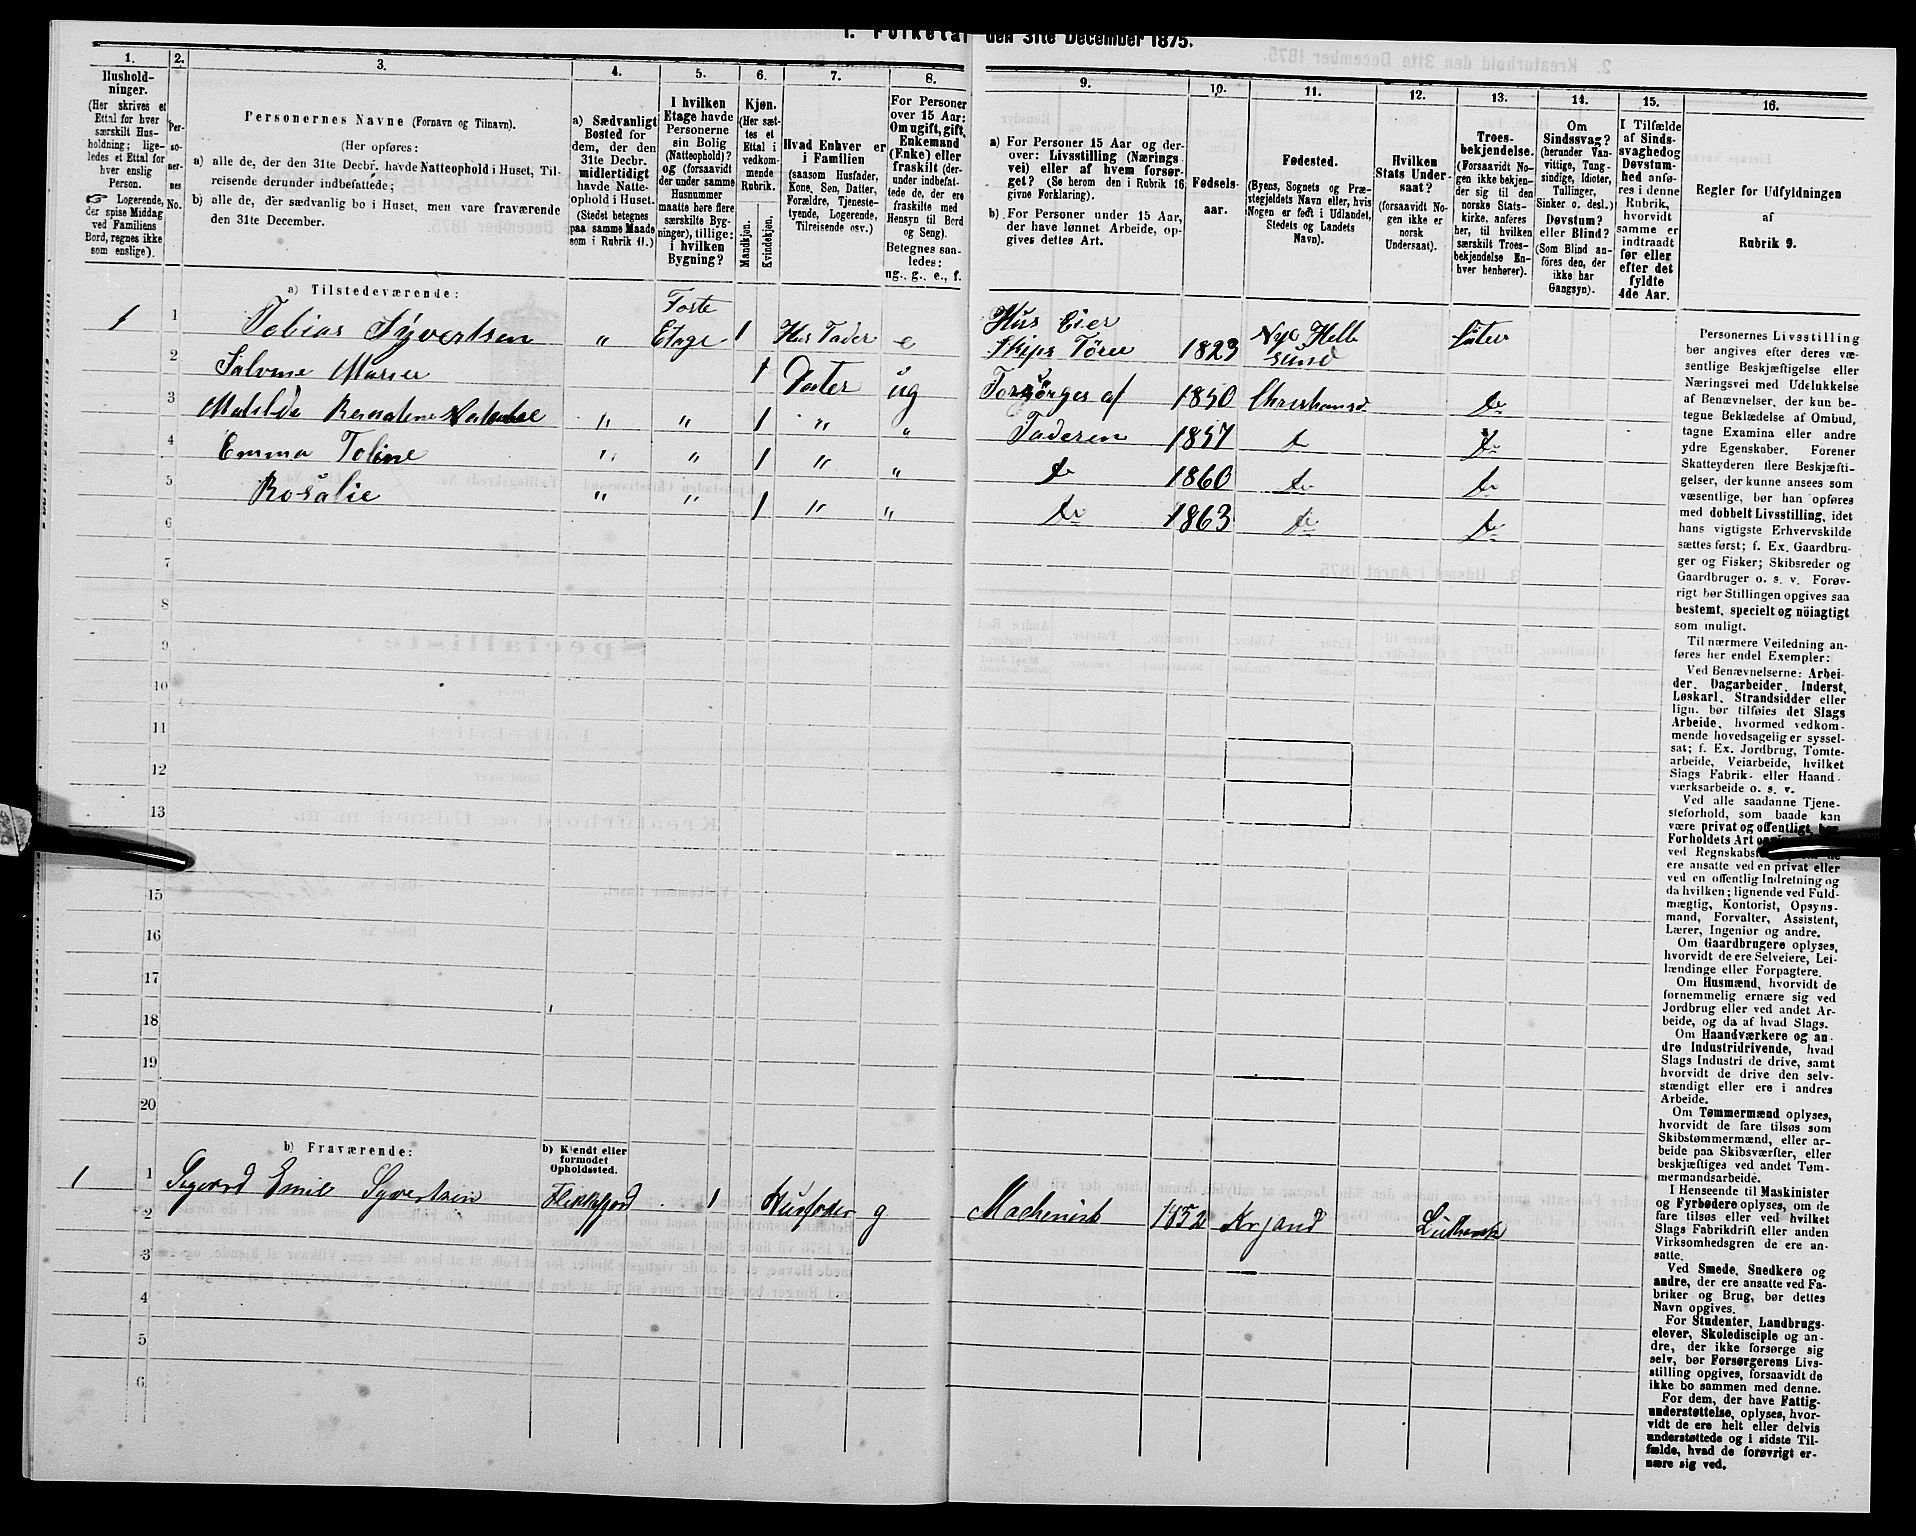 1. Folketal den 31te December 1875.
1.
Hushold-
ninger.
(Her skrives et
Ettal for hver
særskilt Hus-
holdning; lige-
ledes et Ettal for
hver enslig
Person.
☞ Logerende,
der spise Middag
ved Familiens
Bord, regnes ikke
som enslige).
2.
Per-
so-
ner-
nes
No.
3.
Personernes Navne (Fornavn og Tilnavn).
(Her opføres:
a) alle de, der den 31te Decbr. havde Natteophold i Huset, Til-
reisende derunder indbefattede;
b) alle de, der sædvanlig bo i Huset, men vare fraværende
den 31te December.
4.
a) Sædvanligt
Bosted for
dem, der den
31te Decbr.
midlertidigt
havde Natte-
ophold i Huset.
(Stedet betegnes
paa samme Maade
som i Rubrik 11.)
5.
I hvilken
Etage havde
Personerne
sin Bolig
(Natteophold)?
og (forsaavidt
der under samme
Husnummer
maatte høre flere
særskilte Byg-
ninger), tillige:
i hvilken
Bygning?
6.
Kjøn.
(Her sæt-
tes et
Ettal i
vedkom-
mende
Rubrik.
Mandkjøn.
Kvindekjøn.
7.
Hvad Enhver er
i Familien
(saasom Husfader,
Kone, Søn, Datter,
Forældre, Tjeneste-
tyende, Logerende,
Tilreisende osv.)
8.
For Personer
over 15 Aar:
Om ugift, gift,
Enkemand
(Enke) eller
fraskilt (der-
under indbefat-
tede de, der ere
fraskilte med
Hensyn til Bord
og Seng).
Betegnes saa-
ledes:
ug., g., e., f.
9.
a) For Personer 15 Aar og der-
over: Livsstilling (Nærings-
vei) eller af hvem forsør-
get? (Se herom den i Rubrik 16
givne Forklaring).
b) For Personer under 15 Aar,
der have lønnet Arbeide, op-
gives dettes Art.
10.
Fødsels-
aar.
11.
Fødested.
(Byens, Sognets og Præ-
stegjeldets Navn eller, hvis
Nogen er født i Udlandet,
Stedets og Landets
Navn).
12.
Hvilken
Stats Under-
saat?
(forsaavidt No-
gen ikke er
norsk
Undersaat).
13.
Troes-
bekjendelse.
(Forsaavidt No-
gen ikke bekjen-
der sig til den
norske Stats-
kirke, anføres
her, til hvilken
særskilt Troes-
bekjendelse En-
hver henhører).
14.
Om
Sindssvag?
(herunder Van-
vittige, Tung-
sindige, Idioter,
Tullinger,
Sinker o. desl.)
Døvstum?
eller Blind?
(Som Blind an-
føres den, der
ikke har
Gangsyn).
15.
I Tilfælde
af Sinds-
svaghed og
Døvstum-
hed anfø-
res i denne
Rubrik,
hvorvidt
samme er
indtraadt
før eller
efter det
fyldte
4de Aar.
16.
Regler for Udfyldningen
af
Rubrik 9.
a) Tilstedeværende:
1 1 Tobias Syvertsen " Første Etage 1 Hus Fader e Hus Eier Skips Fører 1823 Nye Hellesund Luter
2 Salvine Marie 1 Dater ug Forsørges af 1850 Christiansd do
3 Matilde " " 1 " " Faderen 1857 do do
4 Emma Toline " " 1 " " do 1860 do do
5 Rosalie " " 1 " " do 1863 do do
6
7
8
9
10
11
12
13
15
16
17
18
19
20
b) Fraværende:
b) Kjendt eller
formodet
Opholdssted.
1 1 Sigvard Emil Syvertsen Flekkefjord 1 Husfader g Machenist 1852 Krsand Luthersk
2
3
4
5
6
Personernes Livsstilling
bør angives efter deres væ-
sentlige Beskjæftigelse eller
Næringsvei med Udelukkelse
af Benævnelser, der kun be-
tegne Beklædelse af Ombud,
tagne Examina eller andre
ydre Egenskaber. Forener
Skatteyderen flere Beskjæfti-
gelser, der kunne ansees som
væsentlige, bør han opføres
med dobbelt Livsstilling, idet
hans vigtigste Erhvervskilde
sættes først; f. Ex. Gaardbru-
ger og Fisker; Skibsreder og
Gaardbruger o. s. v. Forøv-
rigt bør Stillingen opgives saa
bestemt, specielt og nöiagtigt
som muligt.
Til nærmere Veiledning an-
føres her endel Exempler:
Ved Benævnelserne: Arbei-
der, Dagarbeider, Inderst,
Løskarl, Strandsidder eller
lign. bør tilføies det Slags
Arbeide, hvormed vedkom-
mende hovedsagelig er syssel-
sat; f. Ex. Jordbrug, Tomte-
arbeide, Veiarbeide, hvilket
Slags Fabrik- eller Haand
værksarbeide o. s. v.
Ved alle saadanne Tjene-
steforhold, som baade kan
være privat og offentligt, bør
Forholdets Art
ved Regnskabs
ere ansatte ved en privat eller
ved en offentlig Indretning og
da hvilken; lignende ved Fuld-
mægtig, Kontorist, Opsyns-
mand, Forvalter, Assistent,
Lærer, Ingeniør og andre.
Om Gaardbrugere oplyses,
hvorvidt de ere Selveiere, Lei-
lændinge eller Forpagtere.
Om Husmænd, hvorvidt de
fornemmelig ernære sig ved
Jordbrug eller ved andet Ar-
beide, og da af hvad Slags.
Om Haandværkere og an-
dre Industridrivende, hvad
Slags Industri de drive, samt
hvorvidt de drive den selv-
stændigt eller ere i andres
Arbeide.
Om Tømmermænd oplyses,
hvorvidt de fare tilsøs som
Skibstømmermænd, eller ar-
beide paa Skibsværfter, eller
beskjæftiges ved andet Tøm-
mermandsarbeide.
I Henseende til Maskinister
og Fyrbødere oplyses, om de
fare tilsøs eller ved hvilket
Slags Fabrikdrift eller anden
Virksomhedsgren de ere an-
satte.
Ved Smede, Snedkere og
andre, der ere ansatte ved Fa-
briker og Brug, bør dettes
Navn opgives.
For Studenter, Landbrugs-
elever, Skoledisciple og an-
dre, der ikke forsørge sig
selv, bør Forsørgerens Livs-
stilling opgives, forsaavidt de
ikke bo sammen med denne.
For dem, der have Fattig-
understøttelse, oplyses, hvor-
vidt de ere helt eller delvis
understøttede og i sidste Til-
fælde, hvad de forøvrigt er-
nære sig ved.